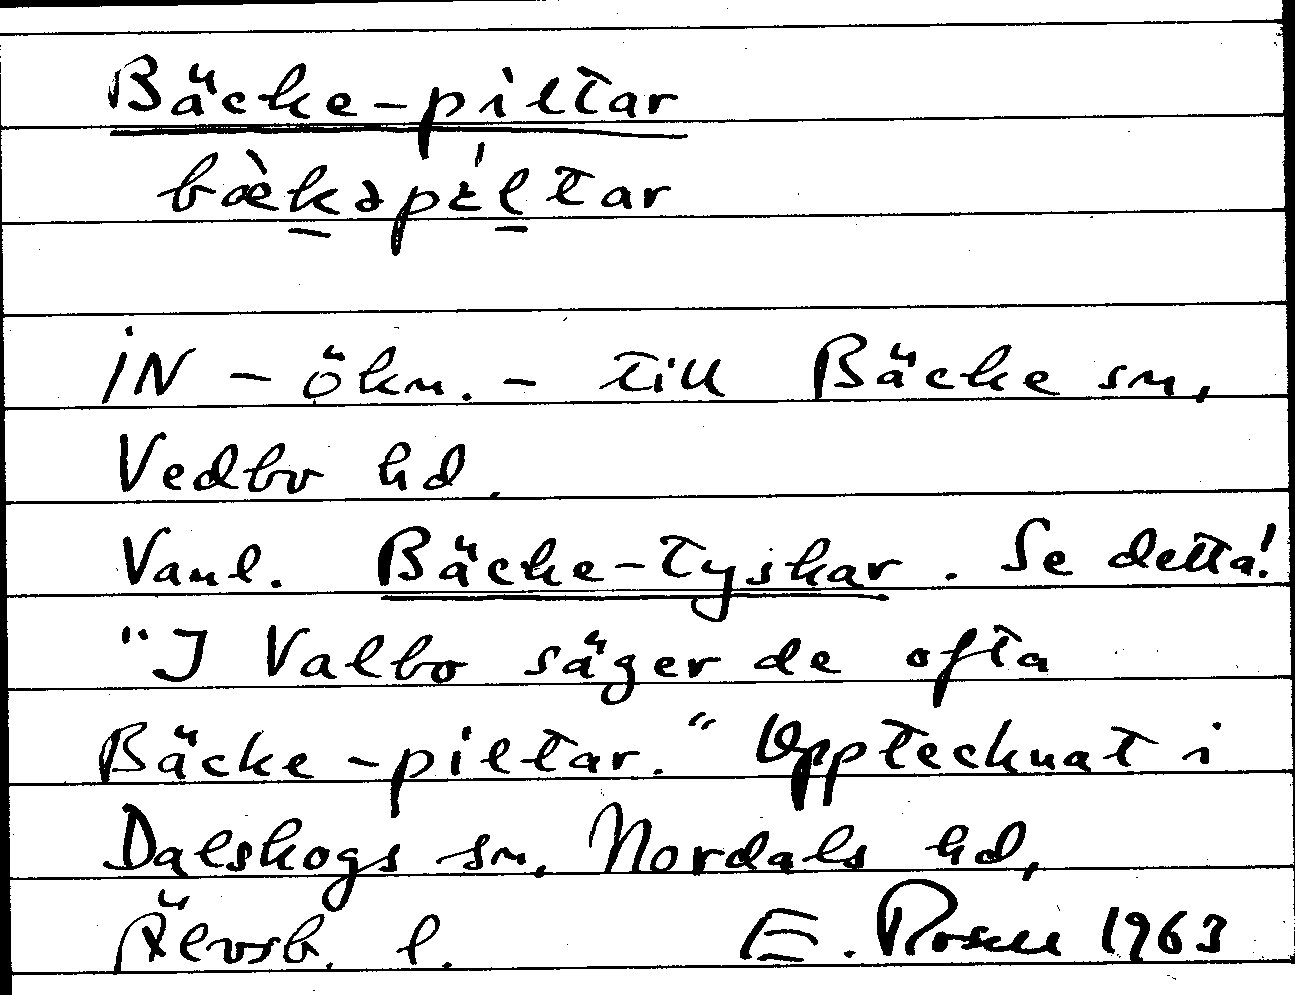 Bäcke-piltar
bæ̀kəpíltar
IN - ökn. - till Bäcke sn,
Vedbo hd.
Vanl. Bäcke-tyskar. Se detta!
"I Valbo säger de ofta
Bäcke-piltar." Upptecknat i
Dalskogs sn, Nordals hd,
Älvsb. l. E. Rosell 1963